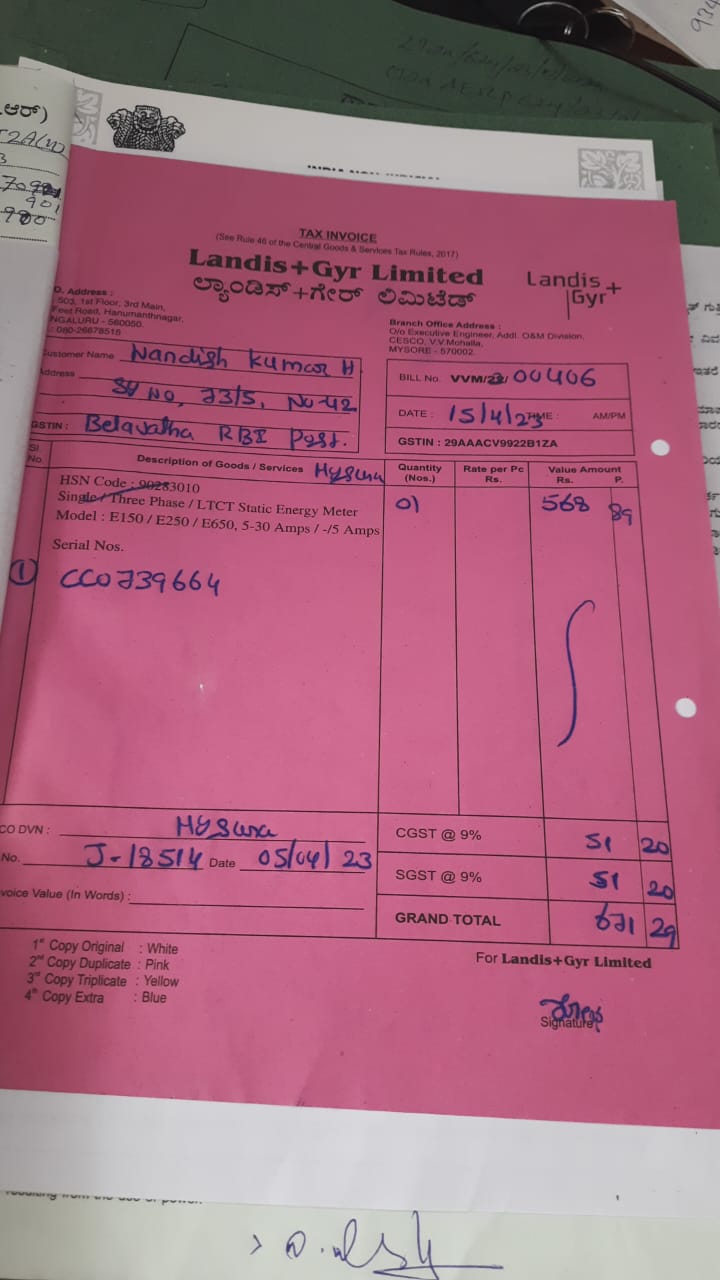 ಆರ್)
TAX INVOICE
(See Rule 46 of the Central Goods & Services Tax Rules, 2017)
Landis+Gyr Limited
ಲ್ಯಾಂಡಿಸ್+ಗೇರ್ ಲಿಮಿಟೆಡ್
Landis+
Gyr
O. Address :
503, 1st Floor, 3rd Main,
Feet Road, Hanumanthnagar,
NGALURU - 560050.
: 080-26678515
Branch Office Address :
O/o Executive Engineer, Addl. O&M Division,
CESCO, V.V.Mohalla,
MYSORE - 570002.
Customer Name Nandish Kumar H
Address Sy No, 73/5, No-42
GSTIN : Belavatha RBI Post.
Mysuru
BILL No. VVM/ 00406
DATE : 15/4/23 TIME : AM/PM
GSTIN : 29AAACV9922B1ZA
Sl. No. Description of Goods / Services Quantity (Nos.) Rate per Pc Rs. Value Amount Rs. P.
HSN Code : 90283010
Single / Three Phase / LTCT Static Energy Meter 01 568 89
Model : E150 / E250 / E650, 5-30 Amps / -/5 Amps
Serial Nos.
1 CC0739664
CO DVN : Mysuru
No. J-18514 Date 05/04/23
voice Value (In Words) :
CGST @ 9% 51 20
SGST @ 9% 51 20
GRAND TOTAL 671 29
1st Copy Original : White
2nd Copy Duplicate : Pink
3rd Copy Triplicate : Yellow
4th Copy Extra : Blue
For Landis+Gyr Limited
Signature